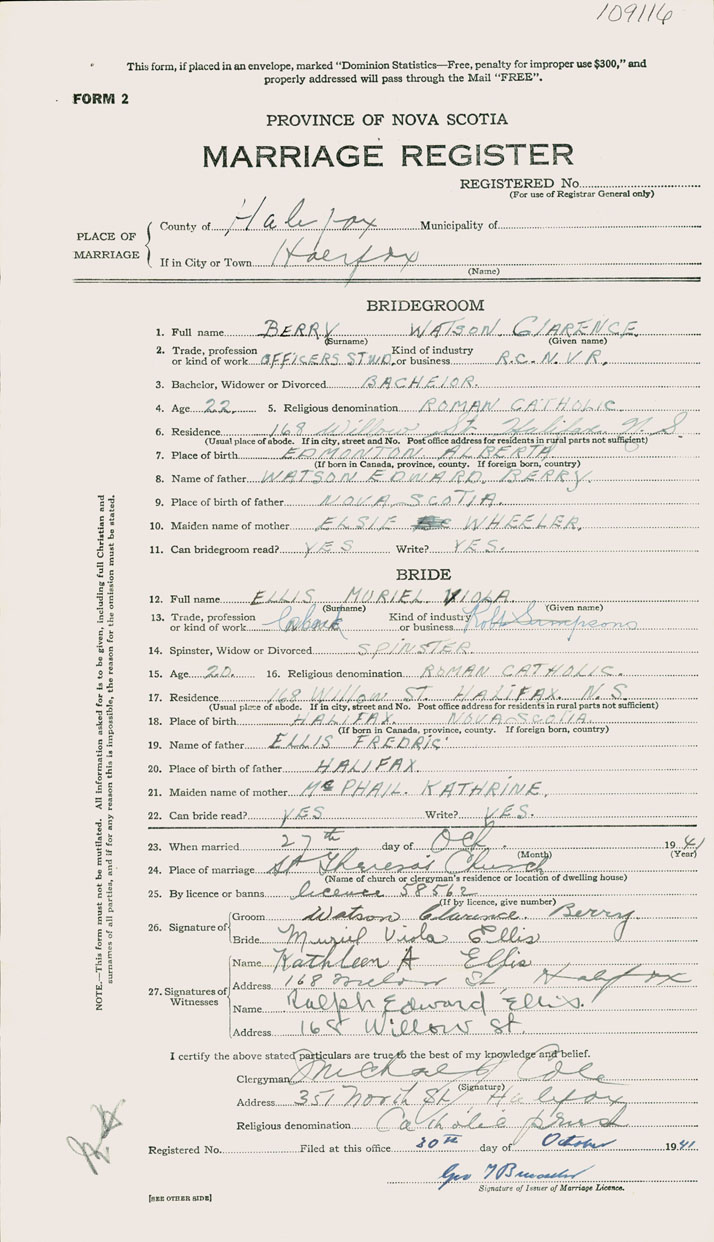 109116
This form, if placed in an envelope, marked "Dominion Statistics—Free, penalty for improper use $300," and
properly addressed will pass through the Mail "FREE".
FORM 2
PROVINCE OF NOVA SCOTIA
MARRIAGE REGISTER
REGISTERED No.
(For use of Registrar General only)
PLACE OF MARRIAGE
County of Halifax Municipality of
If in City or Town Halifax
(Name)
BRIDEGROOM
1. Full name BERRY WATSON CLARENCE
(Surname) (Given name)
2. Trade, profession or kind of work OFFICERS STWD. Kind of industry or business R.C.N.V.R.
3. Bachelor, Widower or Divorced BACHELOR.
4. Age 22. 5. Religious denomination ROMAN CATHOLIC.
6. Residence 168 Willow St. Halifax N S
(Usual place of abode. If in city, street and No. Post office address for residents in rural parts not sufficient)
7. Place of birth EDMONTON ALBERTA
(If born in Canada, province, county. If foreign born, country)
8. Name of father WATSON EDWARD BERRY.
9. Place of birth of father NOVA SCOTIA.
10. Maiden name of mother ELSIE WHEELER.
11. Can bridegroom read? YES Write? YES.
BRIDE
12. Full name ELLIS MURIEL VIOLA
(Surname) (Given name)
13. Trade, profession or kind of work Kind of industry or business Robt Simpsons
14. Spinster, Widow or Divorced SPINSTER
15. Age 20. 16. Religious denomination ROMAN CATHOLIC.
17. Residence 168 WILLOW ST. HALIFAX. N.S.
(Usual place of abode. If in city, street and No. Post office address for residents in rural parts not sufficient)
18. Place of birth HALIFAX. NOVA SCOTIA.
(If born in Canada, province, county. If foreign born, country)
19. Name of father ELLIS FREDRIC
20. Place of birth of father HALIFAX.
21. Maiden name of mother McPHAIL. KATHRINE.
22. Can bride read? YES Write? YES.
23. When married 27th day of Oct. 1941
(Month) (Year)
24. Place of marriage St Theresa's Church
(Name of church or clergyman's residence or location of dwelling house)
25. By licence or banns licence 58562
(If by licence, give number)
26. Signature of
Groom Watson Clarence. Berry
Bride Muriel Viola Ellis
27. Signatures of Witnesses
Name Kathleen A Ellis
Address 168 Willow St Halifax
Name Ralph Edward Ellis.
Address 168 Willow St.
I certify the above stated particulars are true to the best of my knowledge and belief.
Clergyman Michael J Cole
(Signature)
Address 351 North St, Halifax
Religious denomination Catholic priest
Registered No. Filed at this office 30th day of October 1941
Geo
Signature of Issuer of Marriage Licence.
[SEE OTHER SIDE]
NOTE.—This form must not be mutilated. All information asked for is to be given, including full Christian and
surnames of all parties, and if for any reason this is impossible, the reason for the omission must be stated.